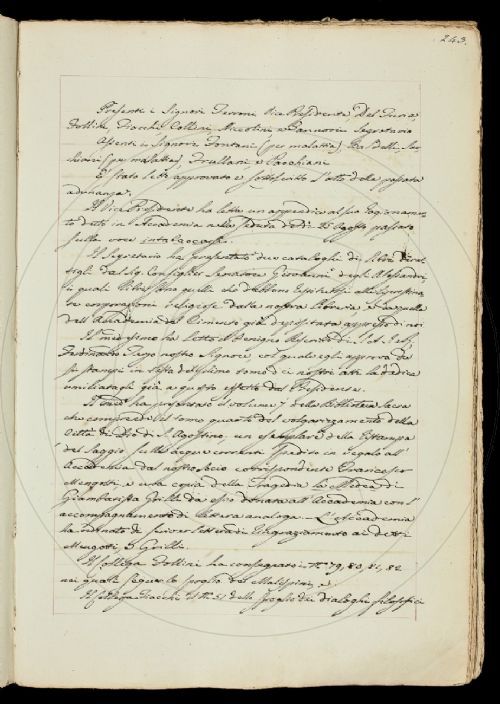 243.
Presenti i Signori Ferroni Vice Presidente Del Furia
Follini, Fiacchi Collini Niccolini e Zannoni Segretario
Assenti i Signori Fontani (per malattia) Baldelli Sar-
chiani (per malattia), Frullani e Pacchiani
È stato letto approvato e sottoscritto l'atto della passata
adunanza.
Il Vice Presidente ha letto un appendice al suo Ragionamen-
to dato in Accademia nella seduta de' dì 25 Agosto passato
sulla voce intaccocare.
Il Segretario ha presentato due cataloghi di libri
dal Sig. Consiglier Senatore Giovanni degli Alessandri,
i quali libri sono quelli che debbono
corporazioni religiose dalla nostra libreria, e da quella
dell'Accademia del Cimento già depositata appresso di noi
Il medesimo ha letto il benigno Rescritto di S. A. I. e R.
Ferdinando Terzo nostro Signore, col quale egli approva che
si stampi in testa del primo tomo de i nostri atti la dedica
umiliatagli già a questo effetto dal Presidente.
ha presentato il volume 7 della Biblioteca Sacra
che comprende il tomo quarto del volgarizzamento della
Città di Dio di S. Agostino, un esemplare della Ristampa
del Saggio sulle acque correnti spedito in regalo all'
Accademia dal nostro socio corrispondente Francesco
Mengotti, e una copia della Tragedia la Medea di
Giambatista Grilli da esso donata all'Accademia con l'
accompagnamento di lettera analoga. L'Accademia
ha ordinato che si scriver lettera di ringraziamento ai detti
Mengotti, e Grilli.
Il collega Follini ha consegnati i N.i 79, 80, 81, 82
nei quali segue lo spoglio del Malispini, e
Il collega Fiacchi il N. 51 dello spoglio dei dialoghi filosofici